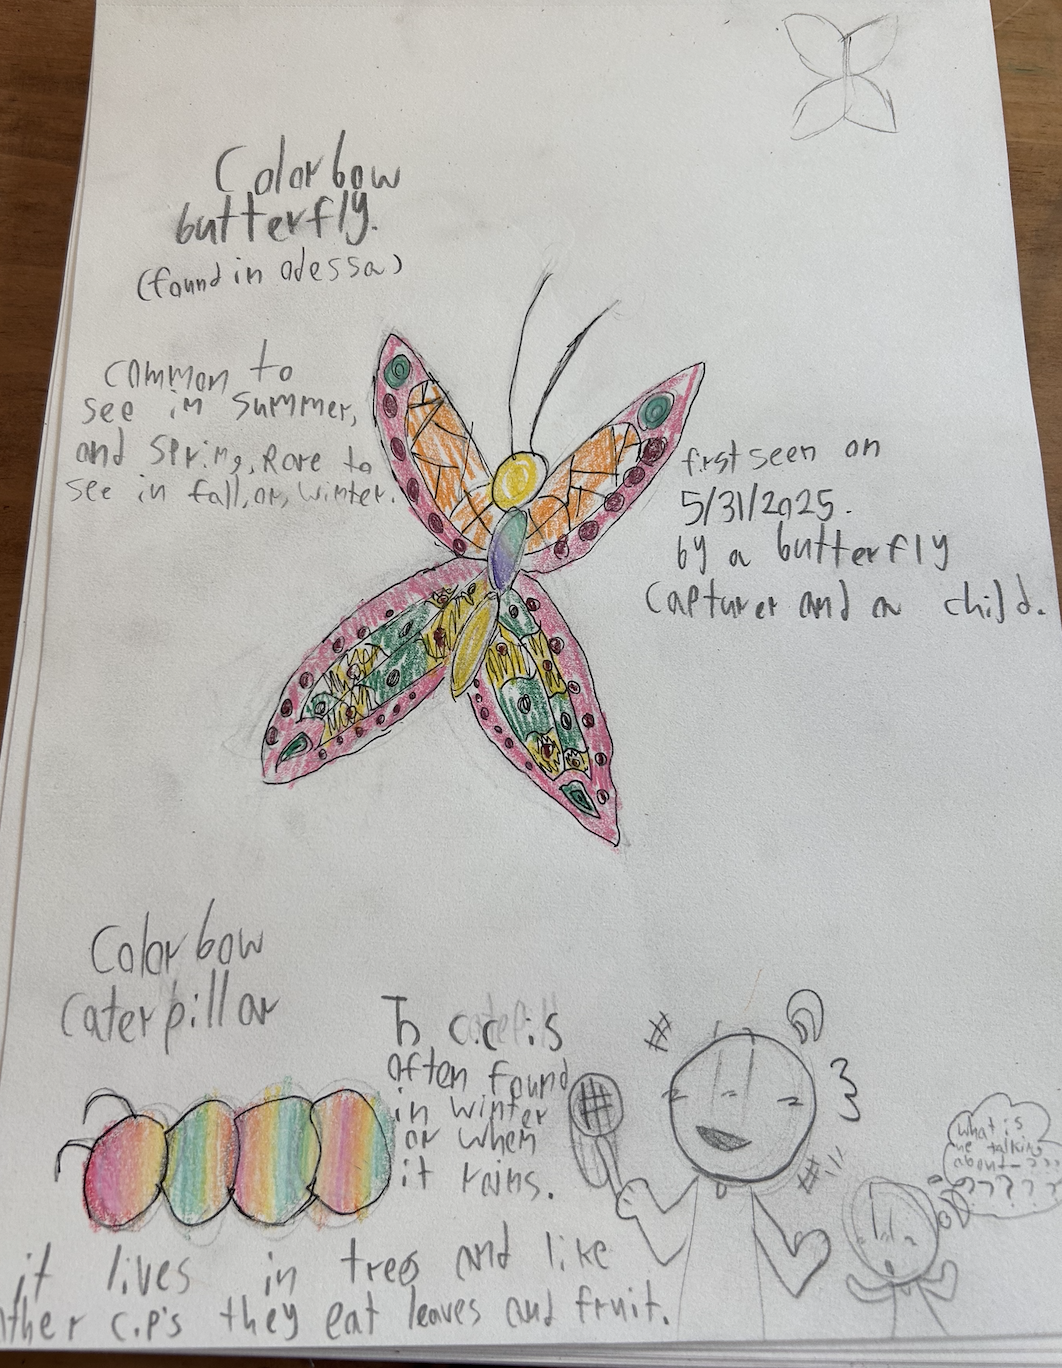 Colorbow
butterfly.
(found in odessa)
common to
see in summer,
and spring, Rare to
see in fall, or, winter.
first seen on
5/31/2025.
by a butterfly
capturer and a child.
Colorbow
caterpillar
c.c is
often found
in winter
or when
it rains.
it lives in trees and like
other c.p's they eat leaves and fruit.
what is
he talking
about-???
?????